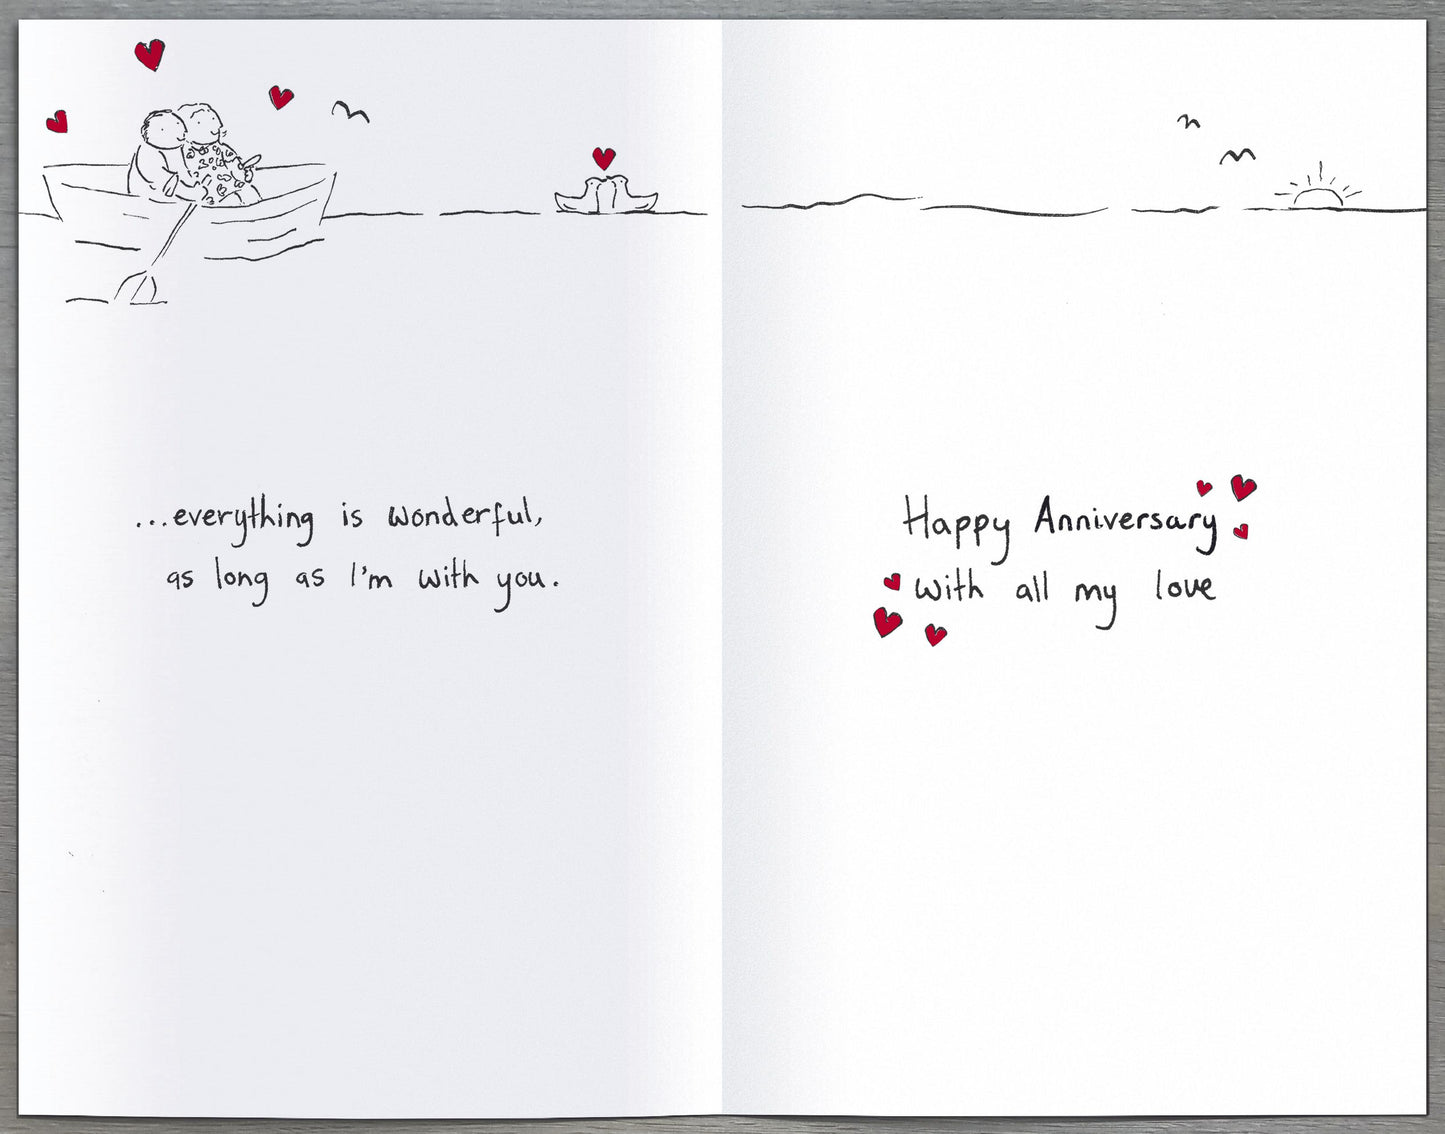 ...everything is wonderful,
as long as I'm with you.
Happy Anniversary
with all my love